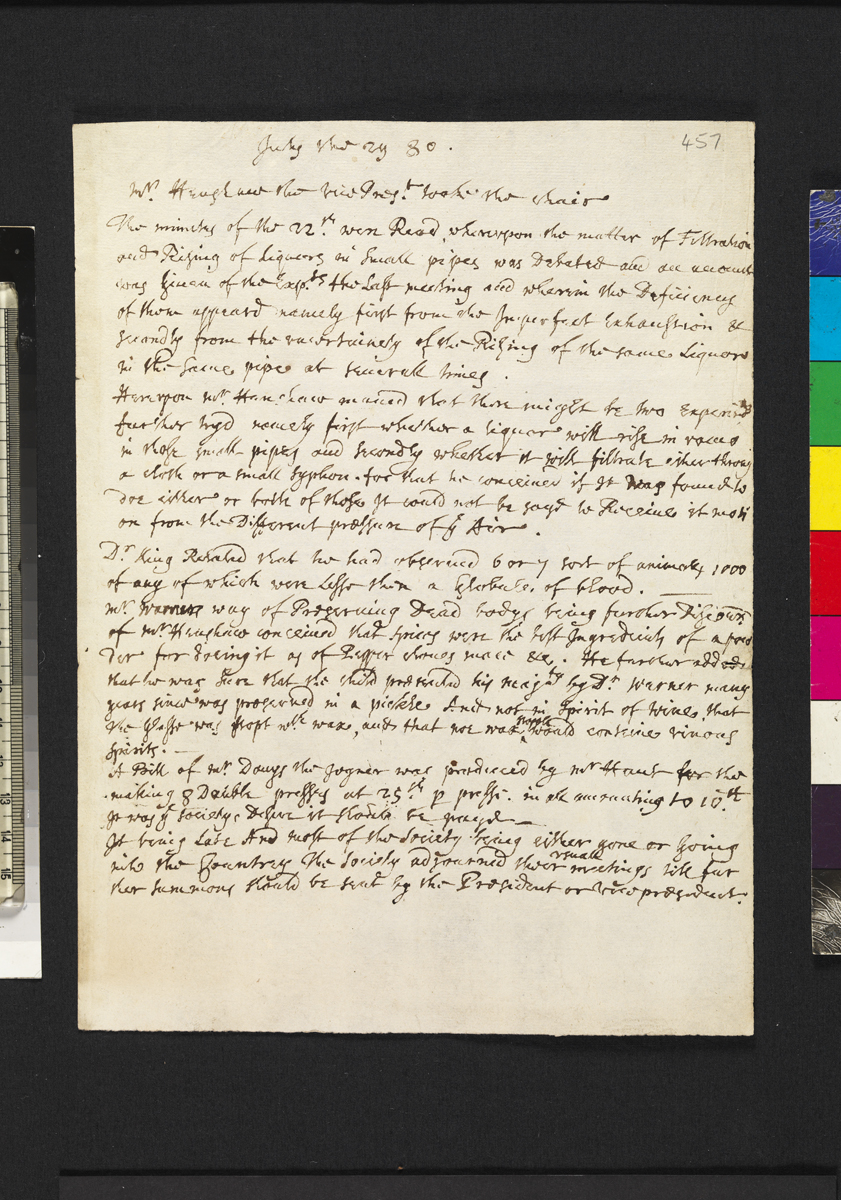 July the 29 80.
457
Mr. Henshaw the vice Pres.t tooke the chair
The minutes of the 22.th were Read, whereupon the matter of Filtration
and Rising of Liquors in small pipes was Debated and an account
was Given of the Exp.ts the Last meeting and wherein the Deficiency
of them appeared namely first from the Imperfect Exhaustion &
secondly from the uncertainty of the Rising of the same Liquor
in the same pipe at severall times.
Hereupon Mr. Henshaw moved that there might be two Experimts
further tryd namely first whether a liquor will rise in vacuo
in those small pipes and secondly whether it will filtrate either throug
a cloth or a small syphon. for that he conceived if it was found to
doe either or both of those It could not be sayd to Receive it moti
on from the Different pressure of ye Air.
Dr. King Related that he had observed 6 or 7 sort of animals 1000
of any of which were lesse then a Globule of blood.
Mr. Warners way of Preserving Dead bodys being further Discours
of Mr. Henshaw conceived that spices were the best Ingredients of a pow
der for Doeing it as of Pepper cloves mace &c. He further added
that he was sure that the child presented his majty by Dr. Warner many
years since was preserved in a pickle And not in Spirit of wine, that
the Glasse was stopt wth wax, and that noe wax stopple would conteine vinous
spirits.
A Bill of Mr. Davys the Joyner was produced by Mr Hunt for the
making 8 Double presses at 25.sh p presse. in all amounting to 10.lb
It was ye Societys Desire it should be payd
It being Late And most of the Society being either gone or Going
into the Countrey The Society adjourned their usuall meetings till fur
ther summons should be sent by the President or vice president.